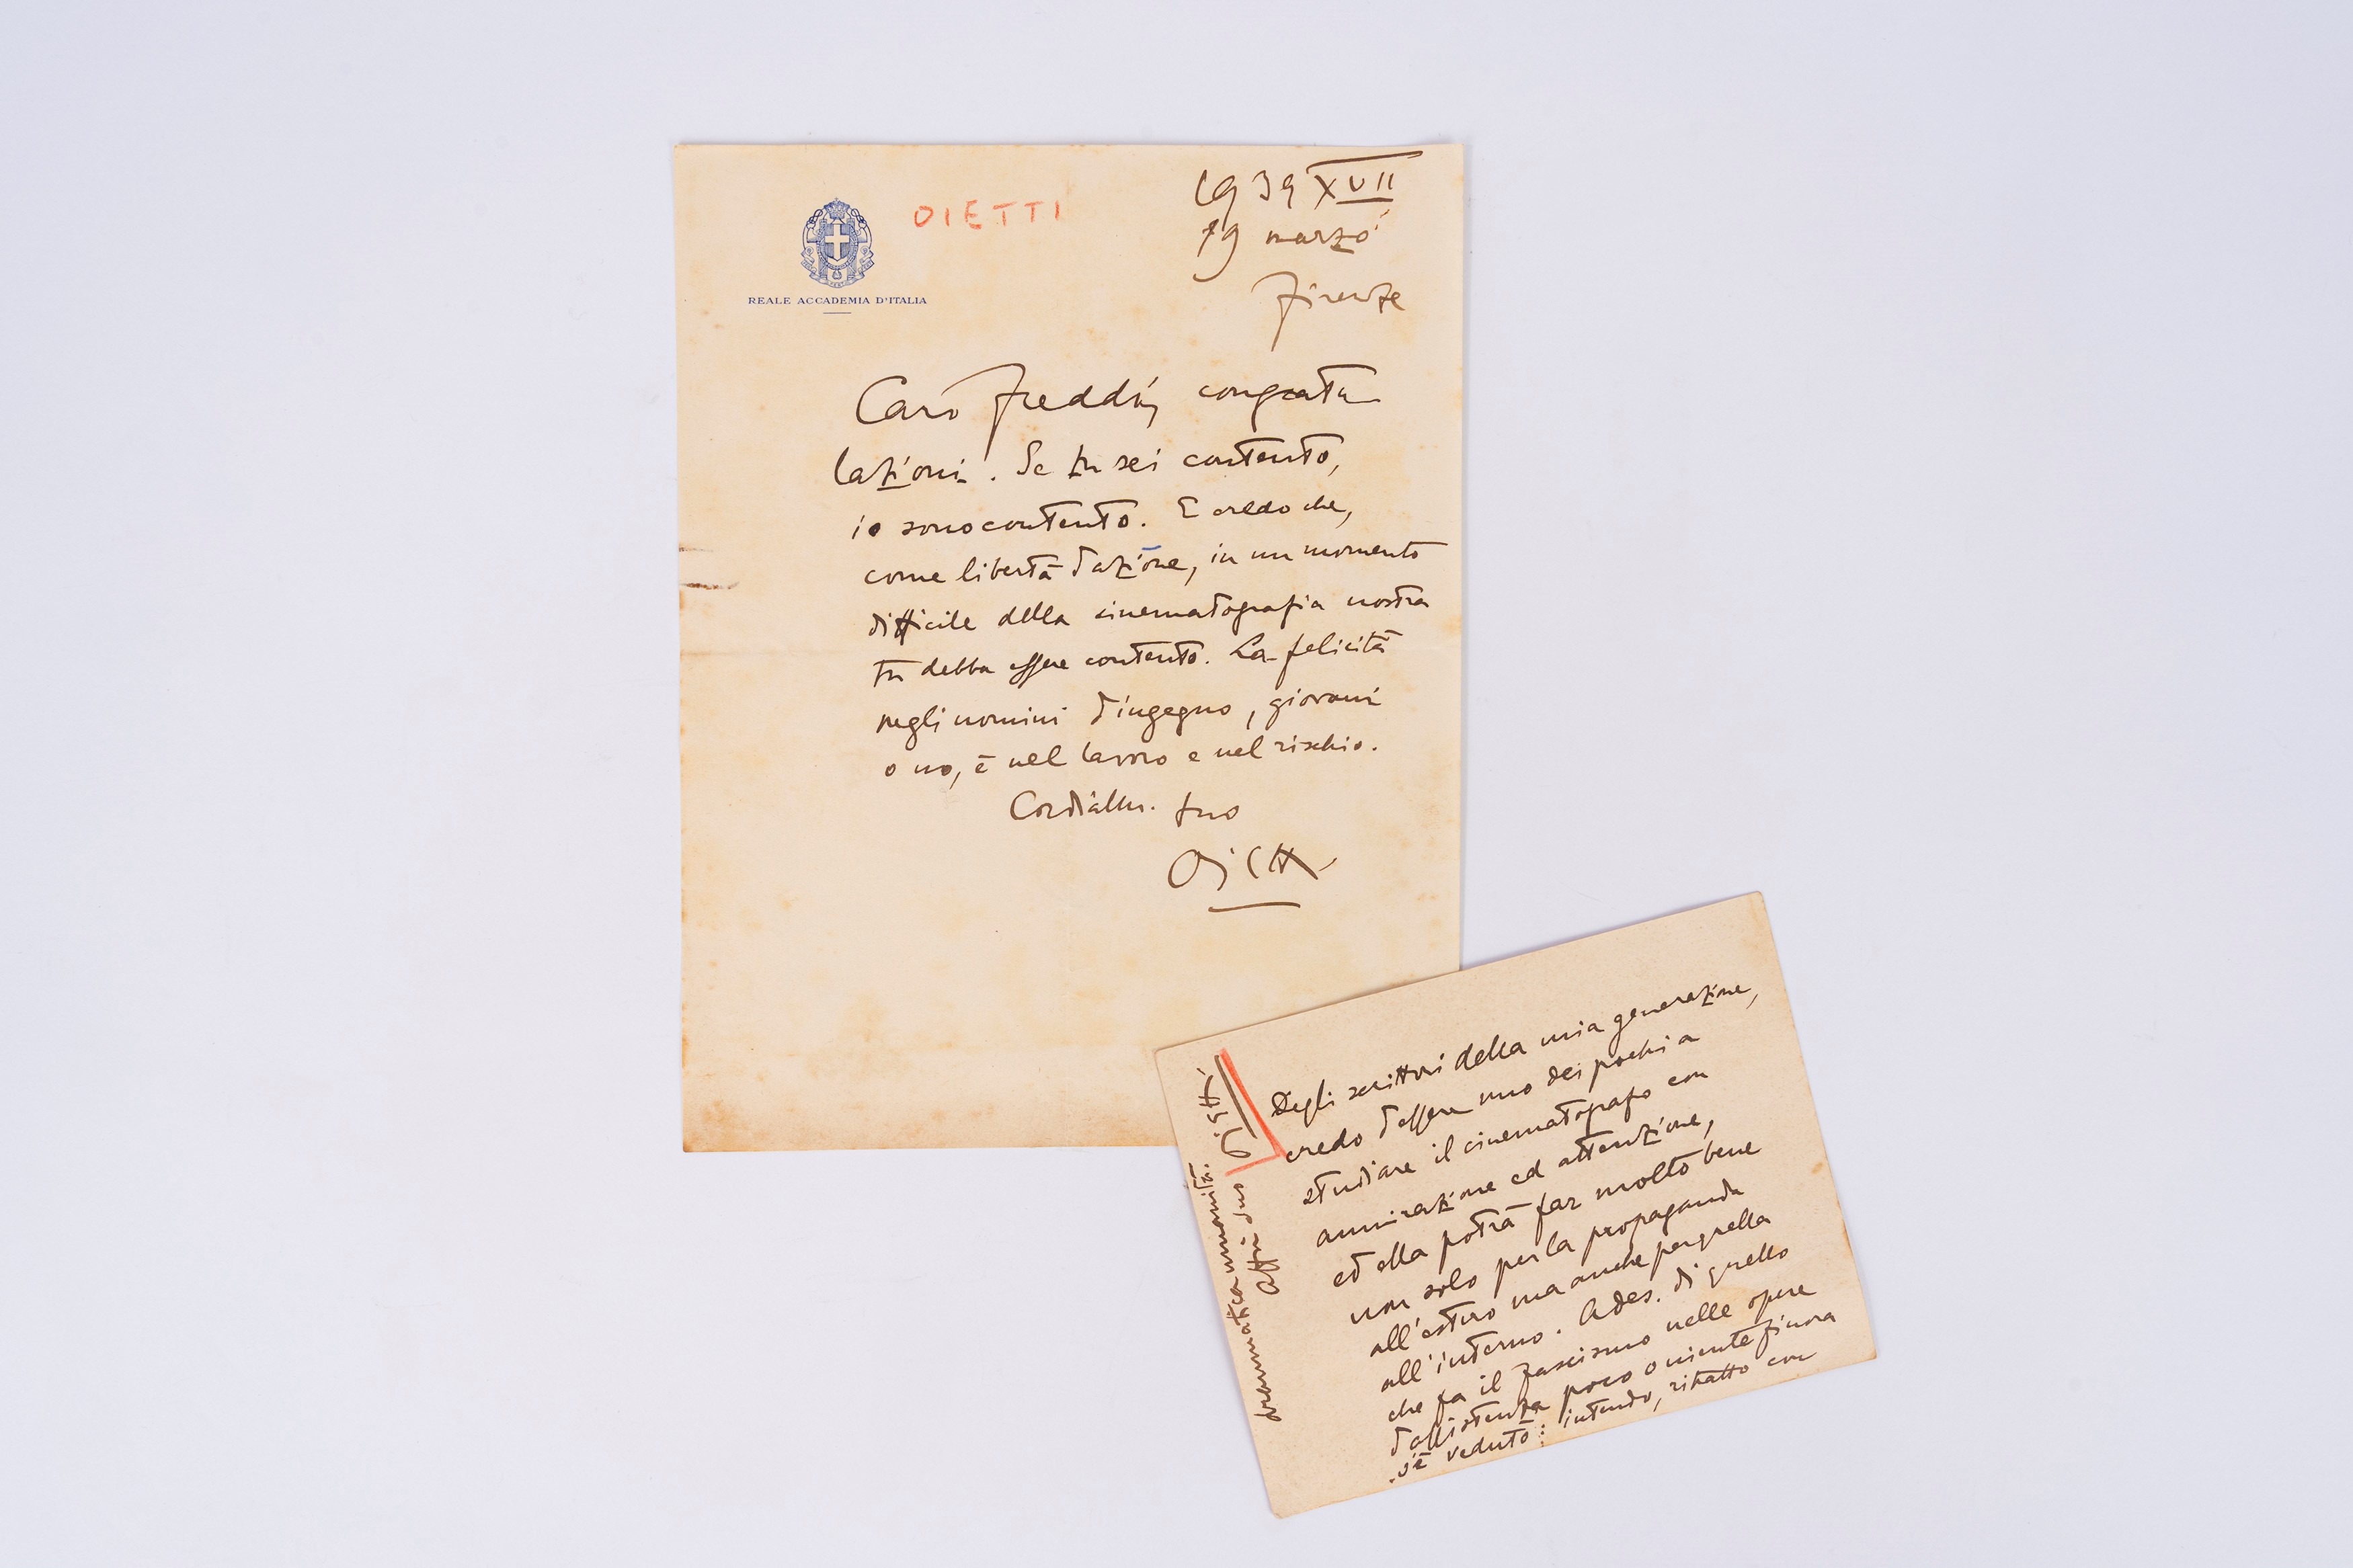 REALE ACCADEMIA D'ITALIA
OIETTI
1939 XVII
19 marzo
Firenze
Caro Freddi, congratu
lazioni. Se tu sei contento,
io sono contento. E credo che,
come libertà d'azione, in un momento
difficile della cinematografia nostra
tu debba essere contento. La felicità
negli uomini d'ingegno, giovani
o no, è nel lavoro e nel rischio.
Cordialm. tuo
Ojetti
Degli scrittori della mia generazione,
credo d'essere uno dei pochi a
studiare il cinematografo con
ammirazione ed attenzione,
ed ella potrà far molto bene
non solo per la propaganda
all'estero ma anche per quella
all'interno. Ades. di quello
che fa il fascismo nelle opere
d'assistenza poco o niente finora
s'è veduto: intendo, ritratto con
drammatica umanità.
Aff. suo Ojetti